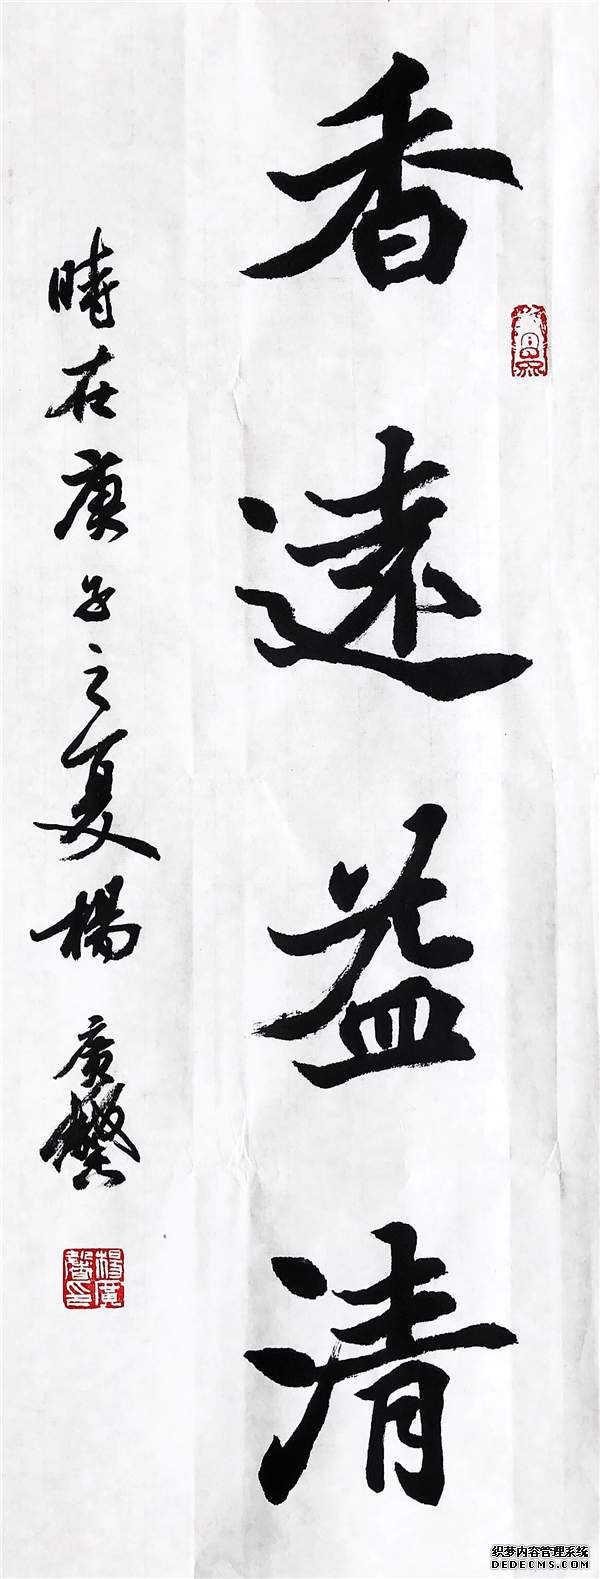 香遠益清
時在庚子之夏楊廣馨
楊廣馨印
织梦内容管理系统
DEDECMS.COM